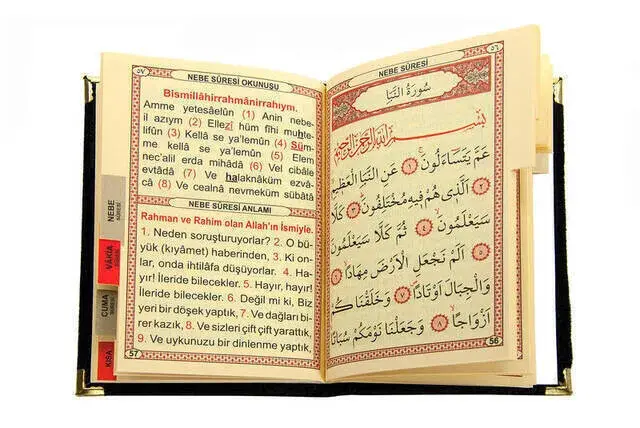 ٥٧
NEBE SÛRESİ OKUNUŞU
Bismillâhirrahmânirrahıym.
Amme yetesâelûn (1) Anin nebe-
il azıym (2) Ellezî hüm fîhi muhte-
lifûn (3) Kellâ se ya'lemûn (4) Süm-
me kellâ se ya'lemûn (5) Elem
nec'alil erda mihâdâ (6) Vel cibâle
evtâdâ (7) Ve halaknâküm ezvâ-
câ (8) Ve cealnâ nevmeküm sübâtâ
NEBE SÛRESİ ANLAMI
Rahman ve Rahim olan Allah'ın İsmiyle.
1. Neden soruşturuyorlar? 2. O bü-
yük (kıyâmet) haberinden, 3. Ki on-
lar, onda ihtilâfa düşüyorlar. 4. Ha-
yır! İleride bilecekler. 5. Hayır, hayır!
İleride bilecekler. 6. Değil mi ki, Biz
yeri bir döşek yaptık, 7. Ve dağları bi-
rer kazık, 8. Ve sizleri çift çift yarattık,
9. Ve uykunuzu bir dinlenme yaptık,
57
NEBE
SÛRESİ
VÂKIA
CUMA
KISA
٥٦
NEBE SÛRESİ
سُورَةُ النَّبَأِ
بِسْمِ اللهِ الرَّحْمٰنِ الرَّحِيمِ
عَمَّ يَتَسَٓاءَلُونَۚ ﴿١﴾ عَنِ النَّبَأِ الْعَظِيمِۙ
﴿٢﴾ اَلَّذِى هُمْ فِيهِ مُخْتَلِفُونَۜ ﴿٣﴾ كَلَّا
سَيَعْلَمُونَۙ ﴿٤﴾ ثُمَّ كَلَّا سَيَعْلَمُونَ
﴿٥﴾ اَلَمْ نَجْعَلِ الْاَرْضَ مِهَادًاۙ ﴿٦﴾
وَالْجِبَالَ اَوْتَادًاۖ ﴿٧﴾ وَخَلَقْنَاكُمْ
اَزْوَاجًاۙ ﴿٨﴾ وَجَعَلْنَا نَوْمَكُمْ سُبَاتًاۙ
56